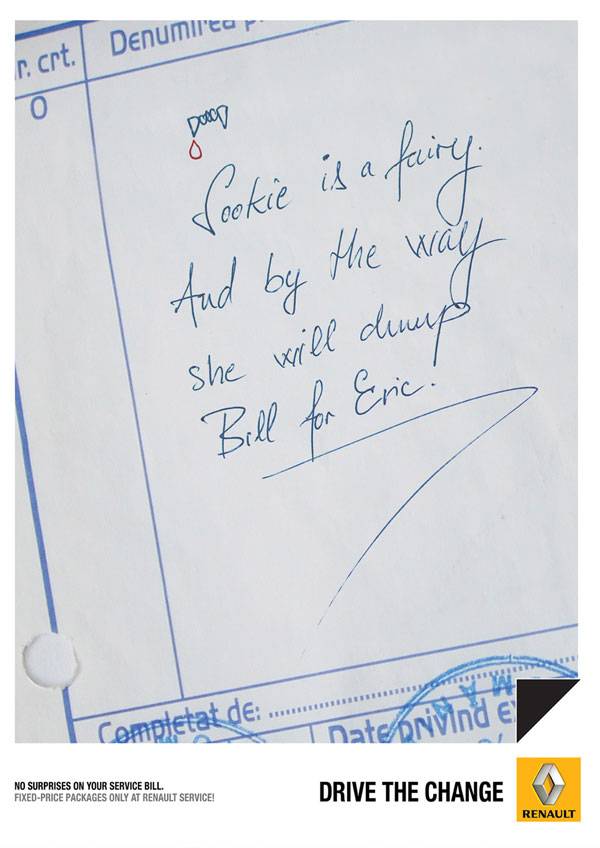 r. crt.
Denumirea p
0
Sookie is a fairy.
And by the way
she will dump
Bill for Eric.
Completat de:
Date privind e
NO SURPRISES ON YOUR SERVICE BILL.
FIXED-PRICE PACKAGES ONLY AT RENAULT SERVICE!
DRIVE THE CHANGE
RENAULT